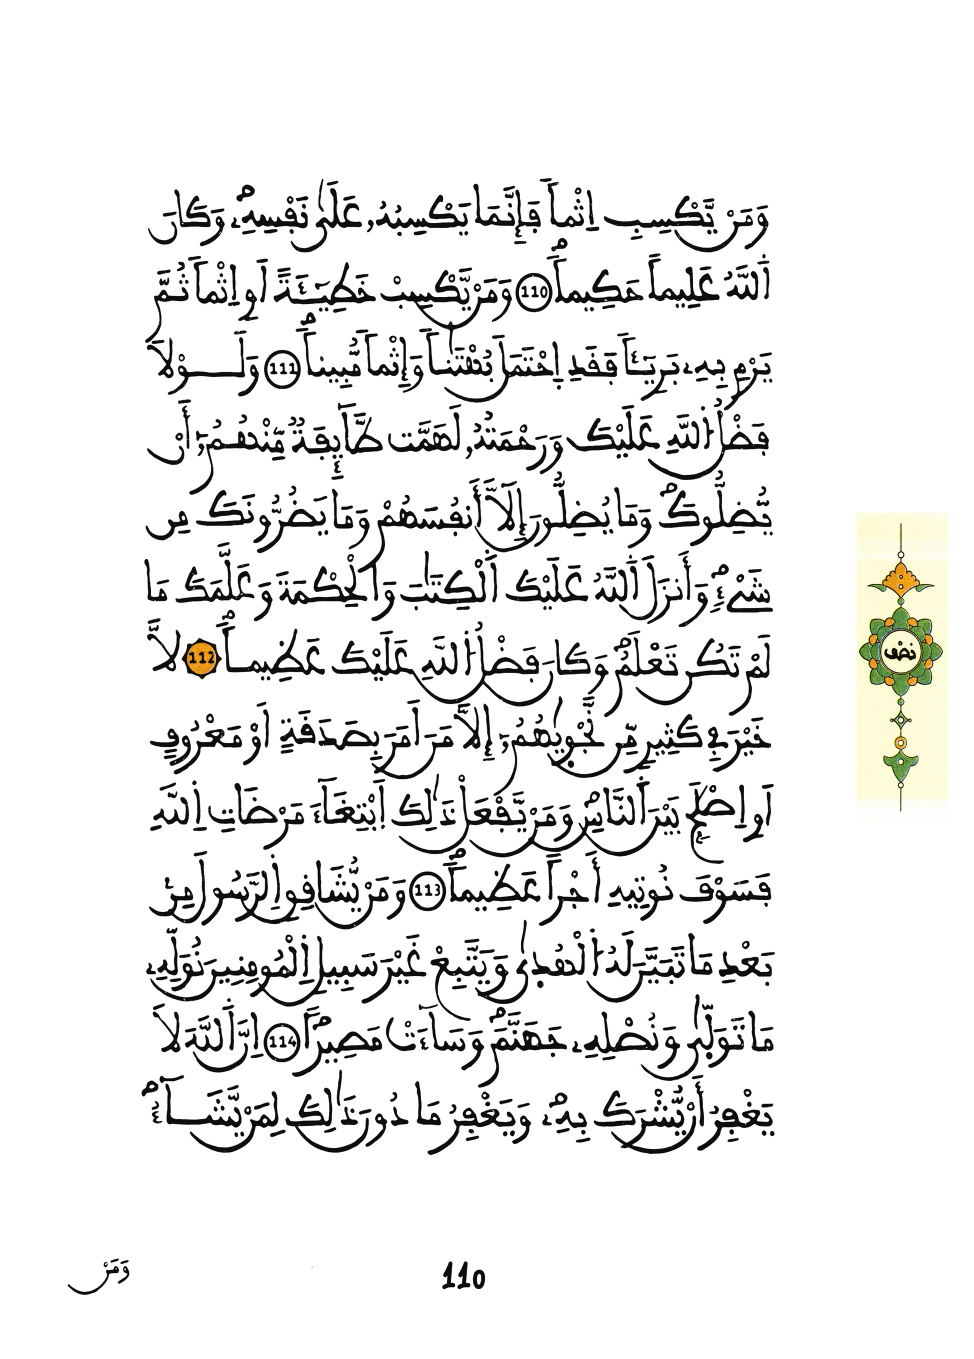 وَمَنْ يَّكْسِبِ اِثْماً فَإِنَّمَا يَكْسِبُهُۥ عَلَىٰ نَفْسِهِۦۖ وَكَانَ
اَ۬للَّهُ عَلِيماً حَكِيماًۖ 110 وَمَنْ يَّكْسِبْ خَطِيٓـَٔةً اَوِ اِثْماً ثُمَّ
يَرْمِ بِهِۦ بَرِيٓـٔاً فَقَدِ اِحْتَمَلَ بُهْتَٰناً وَإِثْماً مُّبِيناًۖ 111 وَلَوْلَا
فَضْلُ اُ۬للَّهِ عَلَيْكَ وَرَحْمَتُهُۥ لَهَمَّت طَّآئِفَةٌ مِّنْهُمُۥٓ أَنْ
يُّضِلُّوكَۖ وَمَا يُضِلُّونَ إِلَّآ أَنفُسَهُمْ وَمَا يَضُرُّونَكَ مِن
شَيْءٖۖ وَأَنزَلَ اَ۬للَّهُ عَلَيْكَ اَ۬لْكِتَٰبَ وَالْحِكْمَةَ وَعَلَّمَكَ مَا
لَمْ تَكُن تَعْلَمُۖ وَكَانَ فَضْلُ اُ۬للَّهِ عَلَيْكَ عَظِيماًۖ 112 لَّا
خَيْرَ فِے كَثِيرٖ مِّن نَّجْوٜىٰهُمُۥٓ إِلَّا مَنَ اَمَرَ بِصَدَقَةٍ اَوْ مَعْرُوفٍ
اَوِ اِصْلَٰحِۢ بَيْنَ اَ۬لنَّاسِۖ وَمَنْ يَّفْعَلْ ذَٰلِكَ اَ۪بْتِغَآءَ مَرْضَاتِ اِ۬للَّهِ
فَسَوْفَ نُوتِيهِ أَجْراً عَظِيماًۖ 113 وَمَنْ يُّشَاقِقِ اِ۬لرَّسُولَ مِنۢ
بَعْدِ مَا تَبَيَّنَ لَهُ اُ۬لْهُدٜىٰ وَيَتَّبِعْ غَيْرَ سَبِيلِ اِ۬لْمُومِنِينَ نُوَلِّهِۦ
مَا تَوَلّٜىٰ وَنُصْلِهِۦ جَهَنَّمَۖ وَسَآءَتْ مَصِيراًۖ 114 اِنَّ اَ۬للَّهَ لَا
يَغْفِرُ أَنْ يُّشْرَكَ بِهِۦۖ وَيَغْفِرُ مَا دُونَ ذَٰلِكَ لِمَنْ يَّشَآءُۖ
نصف
110
وَمَنْ